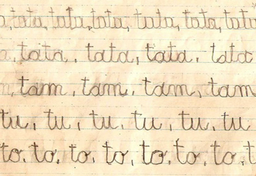 tata, tata, tata, tata, tata
tata, tata, tata, tata
tam, tam, tam, tam
tu, tu, tu, tu, tu, tu
to, to, to, to, to, to, to,